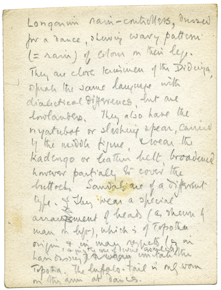 Longarim rain-controllers, dressed
for a dance, showing wavy pattern
(= rain) of colour on their legs.
They are close kinsmen of the Didinga,
speak the same language with
dialectical differences, but are
lowlanders. They also have the
nyatubut or slashing spear, carried
by the middle figure, & wear the
kadengo or leather belt, broadened
however partially to cover the
buttocks. Sandals are of a different
type. They wear a special
arrangement of beads (as shewn by
man on left), which is of Topotha
origin &
in many respects
Topotha. The buffalo-tail is only worn
on the arm at dances.